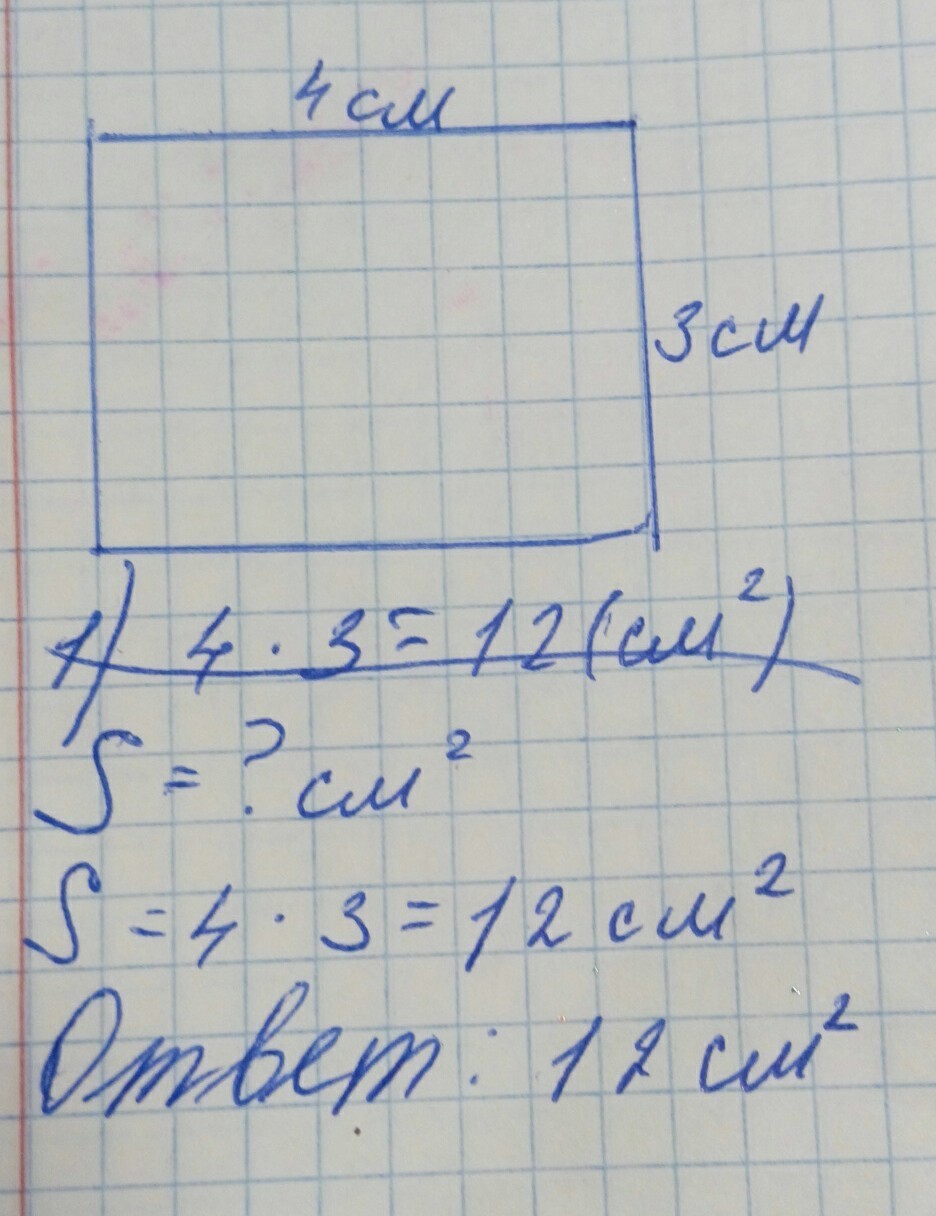 4 см
3 см
1) 4 · 3 = 12 (см²)
S = ? см²
S = 4 · 3 = 12 см²
Ответ: 12 см²